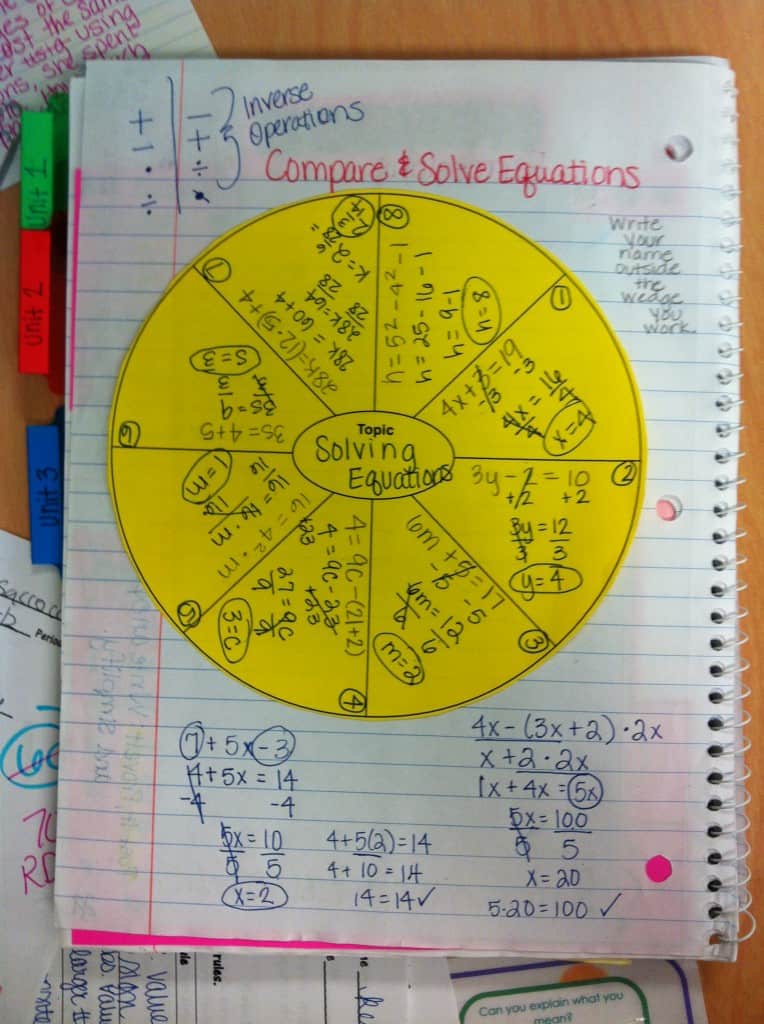 + | −
− | +
· | ÷
÷ | ·
Inverse
Operations
Compare & Solve Equations
Write
your
name
outside
the
wedge
you
work.
Topic
Solving
Equations
1
4x + 3 = 19
-3 -3
4x = 16
4 4
x = 4
2
3y - 2 = 10
+2 +2
3y = 12
3 3
y = 4
3
6m + 5 = 17
-5 -5
6m = 12
6 6
m = 2
4
4 = 9c - (21+2)
4 = 9c - 23
+23 +23
27 = 9c
9 9
3 = c
5
16 = 4² · m
16 = 16 · m
16 16
1 = m
6
3s = 4+5
3s = 9
3 3
s = 3
7
28k = (12·5)+4
28k = 60+4
28k = 64
28 28
k = 2
8
h = 5² - 4² - 1
h = 25 - 16 - 1
h = 9 - 1
h = 8
7 + 5x - 3
4 + 5x = 14
-4 -4
5x = 10
5 5
x = 2
4+5(2)=14
4+10=14
14=14✓
4x - (3x+2)·2x
x + 2·2x
1x + 4x = 5x
5x = 100
5 5
x = 20
5·20=100 ✓
Unit 1
Unit 2
Unit 3
rules.
value
large
Can you explain what you
mean?